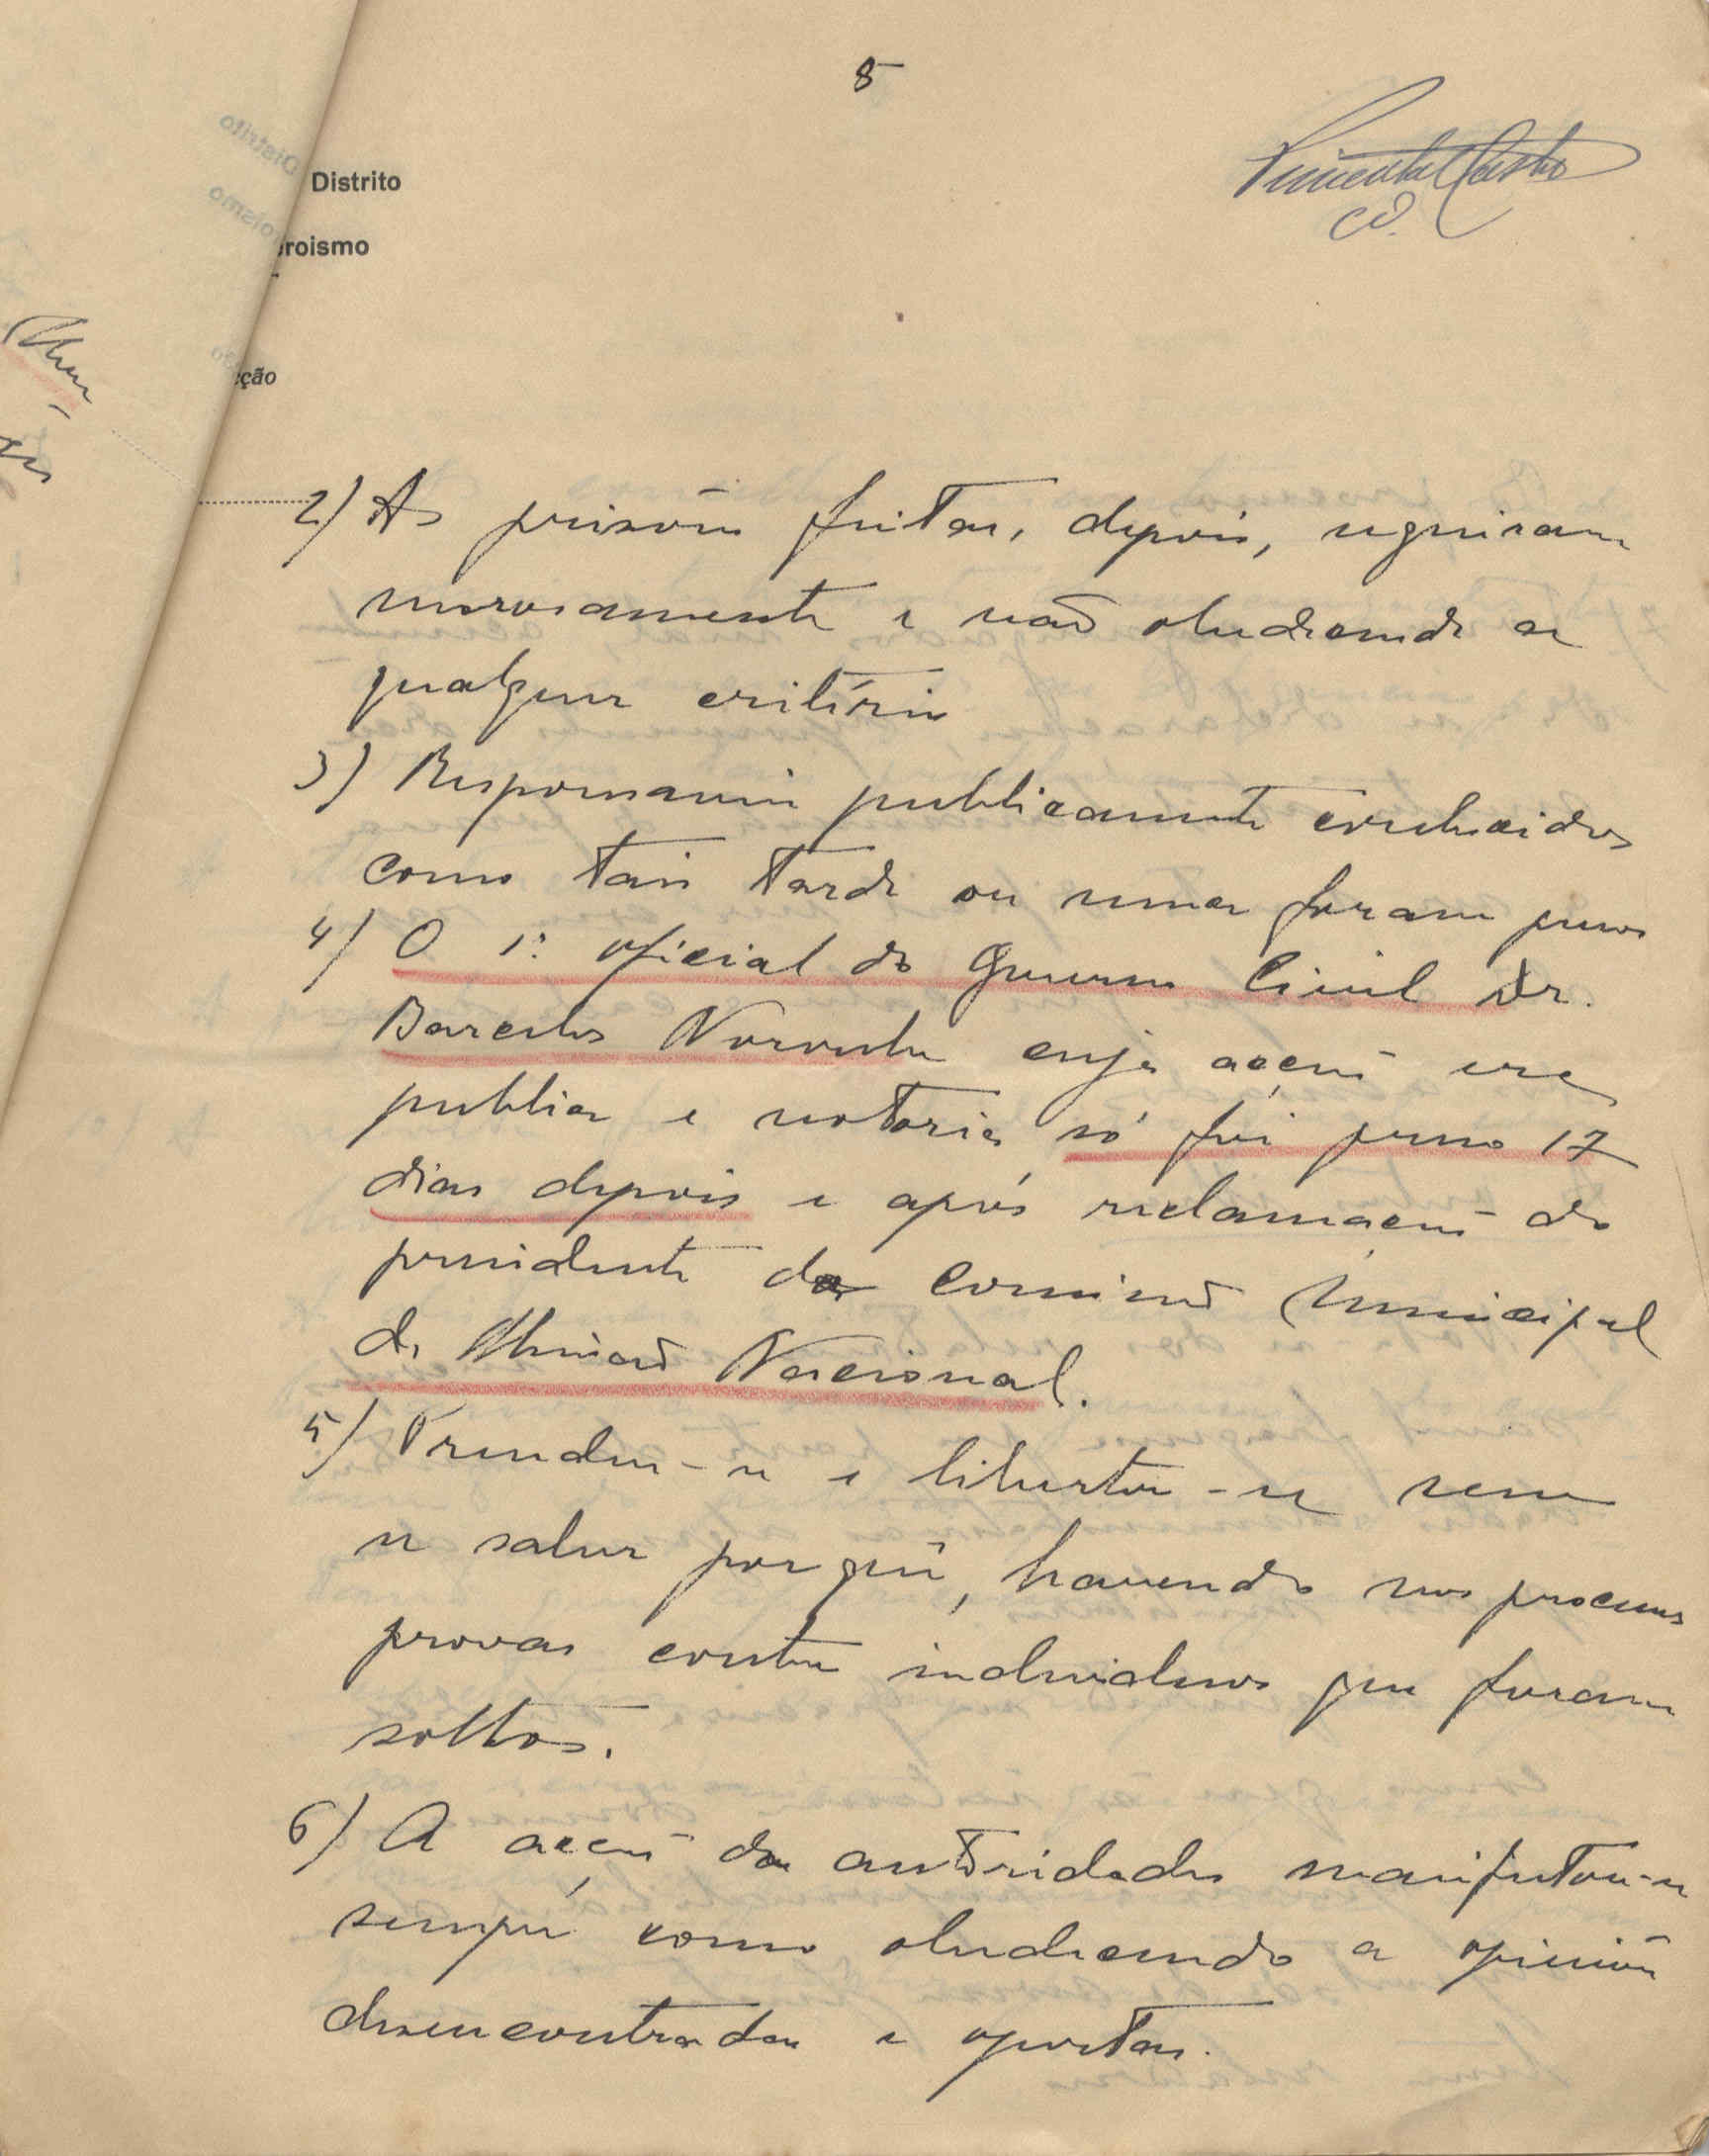 8
Pimenta Castro
Distrito
roismo
ção
2) As prisões feitas, depois, seguiram
morosamente e não obedecendo a
qualquer critério
3) Responsaveis publicamente conhecidos
como tais tarde ou nunca foram presos
4) O 1º oficial do Governo Civil Dr.
Barcelos Noronha cuja acção era
publica e notoria só foi preso 17
dias depois e após reclamação do
presidente da Comissão Municipal
da União Nacional.
5) Prendeu-se e libertou-se sem
se saber porquê, havendo nos processos
provas contra individuos que foram
soltos.
6) A acção das autoridades manifestou-se
sempre como obedecendo a opiniões
desencontradas e opostas.